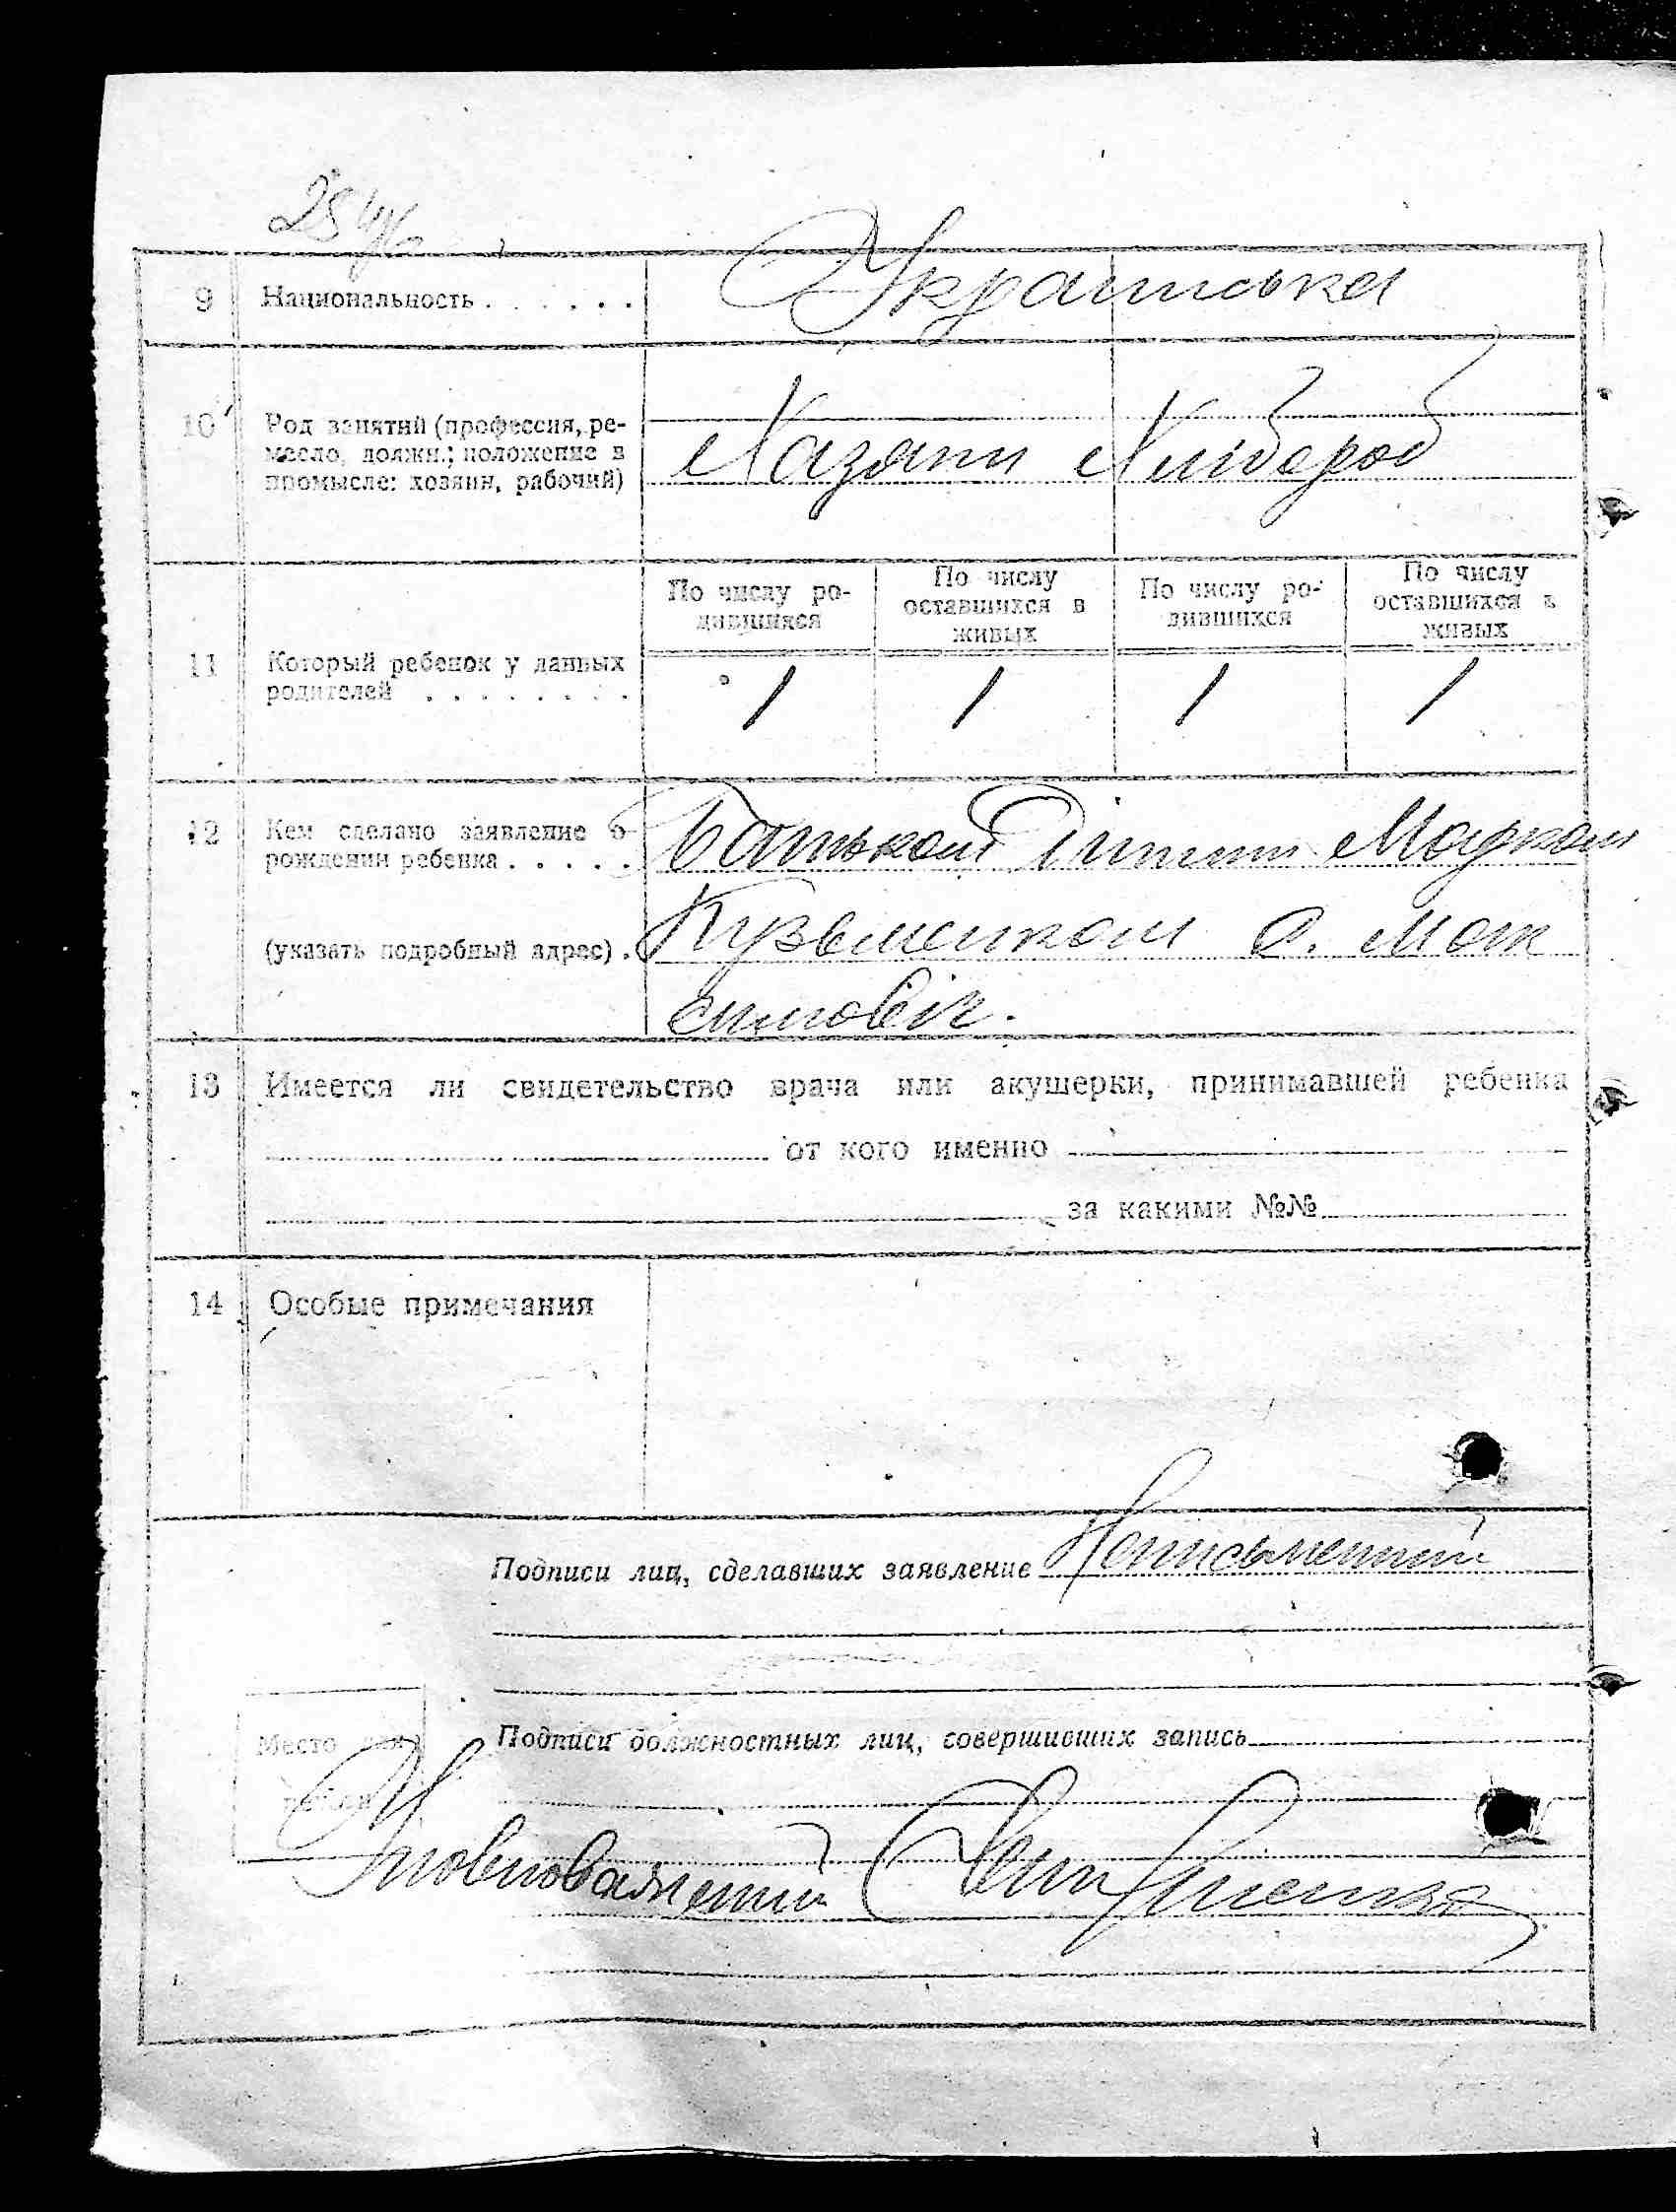 9 Национальность . . . . . . Українська
10 Род занятий (профессия, ре-
месло, должн.; положение в
промысле: хозяин, рабочий)
Хазяин Хлібороб
По числу ро-
дившихся
По числу
оставшихся в
живых
По числу ро-
дившихся
По числу
оставшихся в
живых
11 Который ребенок у данных
родителей . . . . . . . .
1 1 1 1
12 Кем сделано заявление о
рождении ребенка . . . . .
Батьком Марком
(указать подробный адрес) . Кузьменком
13 Имеется ли свидетельство врача или акушерки, принимавшей ребенка
от кого именно
за какими №№
14 Особые примечания
Подписи лиц, сделавших заявление Неписьменний
Место для
печати
Подписи должностных лиц, совершивших запись
Уповноважений